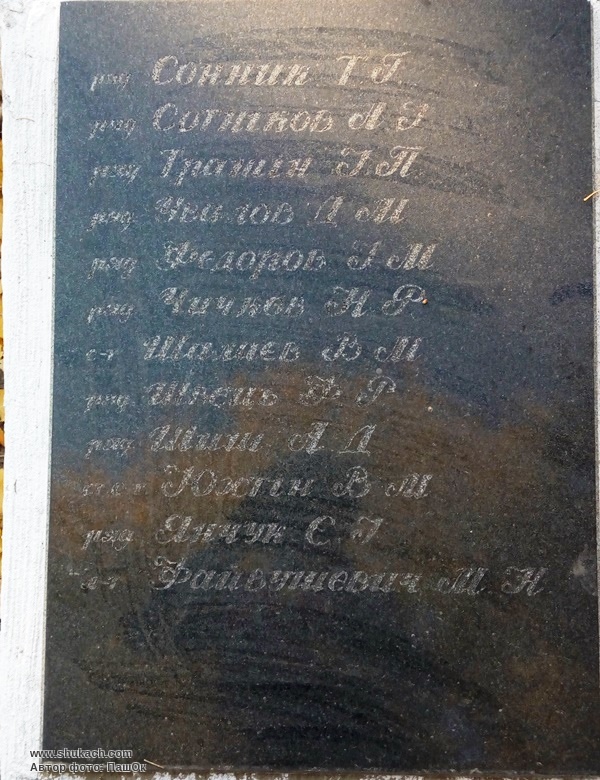 ряд Сонник Т Г
ряд Сотніков А І
ряд Трашін І П
ряд Увалов Д М
ряд Федоров І М
ряд Чичков Н Р
с-т Шалаєв В М
ряд Швець Ф Р
ряд Шиш А Д
Южгін В М
ряд Янчук Є І
Файвушевич М Н
www.shukach.com
Автор фото: ПашОк